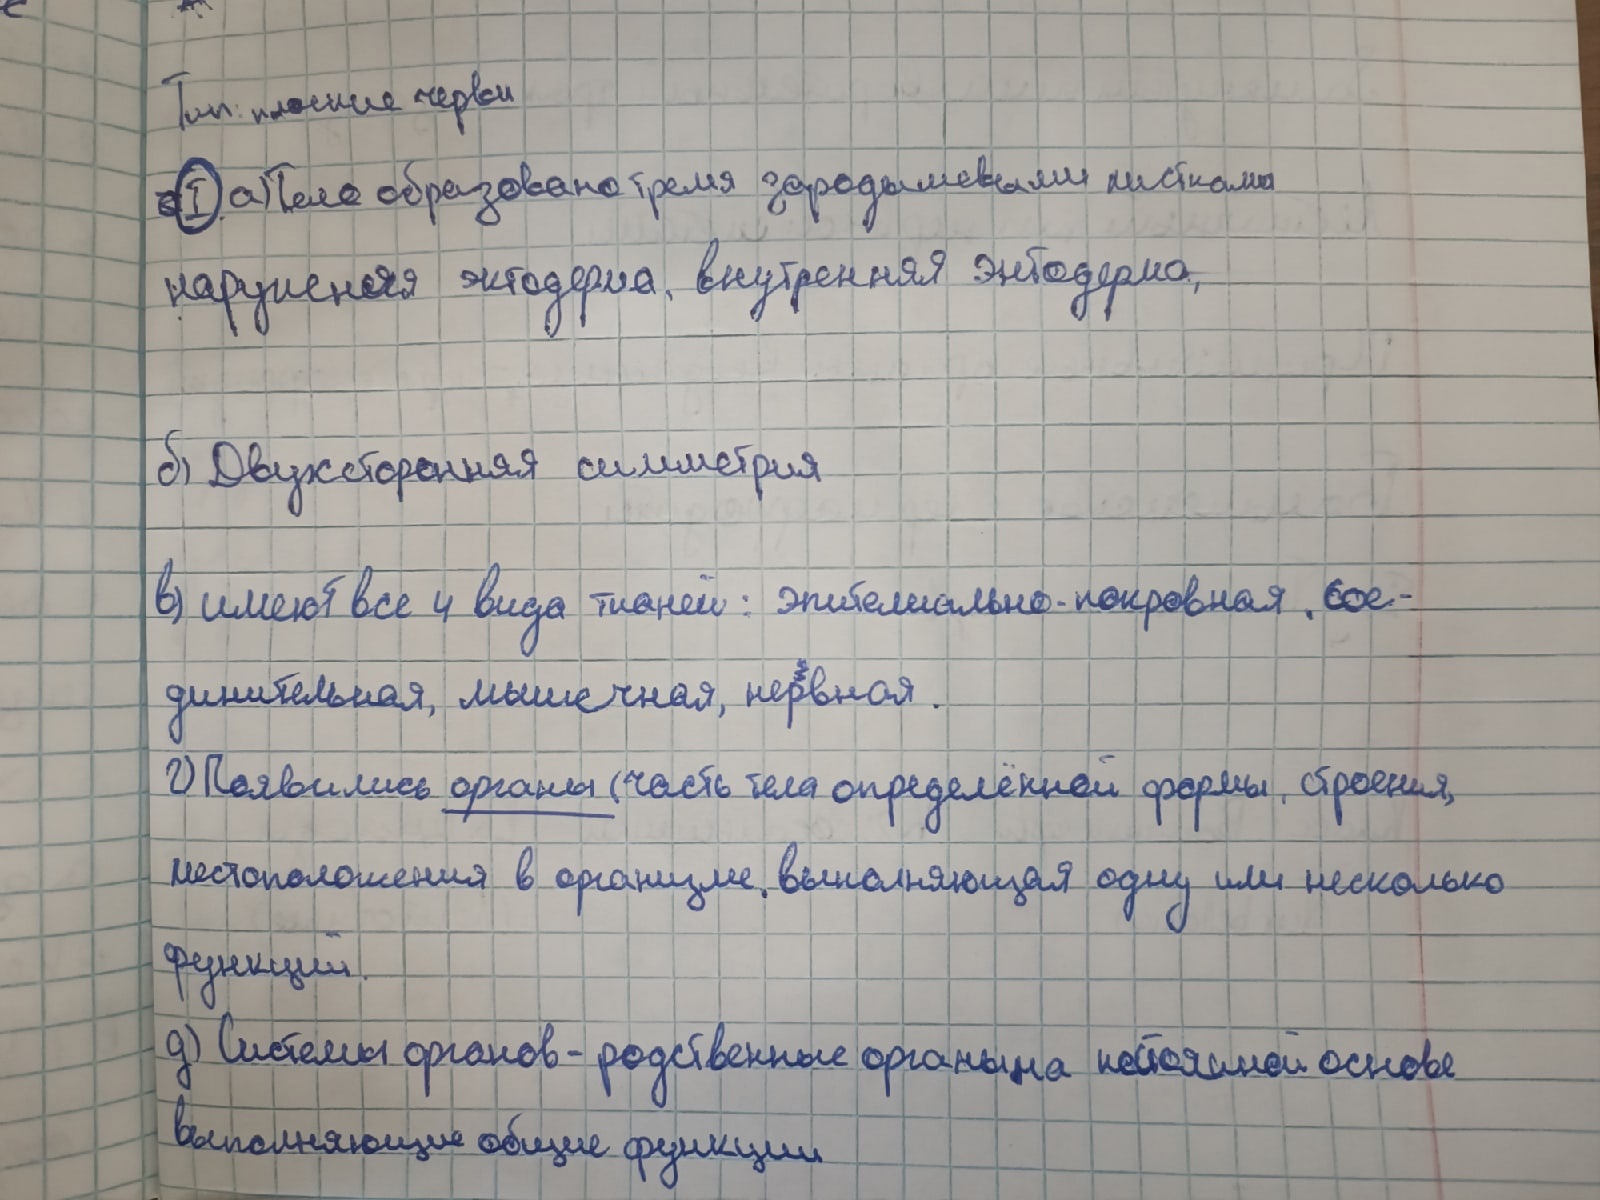 Тип: плоские черви
I. а) Тело образовано тремя зародышевыми листками
наружная эктодерма, внутренняя энтодерма,
б) Двухсторонняя симметрия
в) имеют все 4 вида тканей: эпителиально-покровная, сое-
динительная, мышечная, нервная.
г) Появились органы (часть тела определённой формы, строения,
местоположения в организме, выполняющая одну или несколько
функций.
д) Системы органов - родственные органы, на основе
выполняющие общие функции